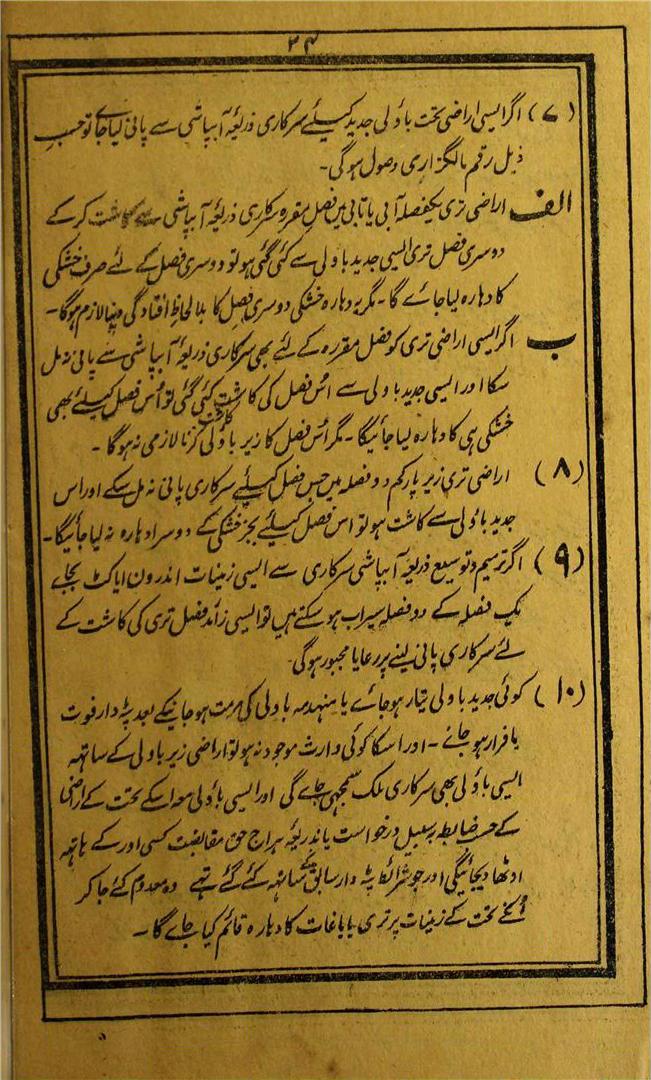 ۲۴
(۷) اگر ایسی اراضی تحت باؤلی جدید کیلئے سرکاری ذریعۂ آبپاشی سے پانی لیا جاے تو حسب
ذیل رقم مالگزاری وصول ہوگی۔
الف اراضی تری یکفصلہ آبی یا تابی میں فصل مقررہ سرکاری ذریعۂ آبپاشی سے کاشت کر کے
دوسری فصل تری ایسی جدید باولی سے کی گئی ہو تو دوسری فصل کے لئے صرف خشکی
کا دہارہ لیا جائے گا۔ مگر یہ دہارہ خشکی دوسری فصل کا بلا لحاظ افتادگی دینا لازم ہوگا۔
ب اگر ایسی اراضی تری کو فصل مقررہ کے لئے بھی سرکاری ذریعۂ آبپاشی سے پانی نہ مل
سکا اور ایسی جدید باولی سے اُس فصل کی کاشت کی گئی تو اُس فصل کیلئے بھی
خشکی ہی کا دہارہ لیا جائیگا۔ مگر اُس فصل کا زیر باؤلی کاشت کرنا لازمی نہ ہوگا۔
(۸) اراضی تری زیر پارکم دو فصلہ میں جس فصل کیلئے سرکاری پانی نہ مل سکے اور اس
جدید باؤلی سے کاشت ہو تو اس فصل کیلئے بجز خشکی کے دوسرا دہارہ نہ لیا جائیگا۔
(۹) اگر ترمیم و توسیع ذریعۂ آبپاشی سرکاری سے ایسی زمینات اندرون ایاکٹ بجاے
یک فصلہ کے دو فصلہ سیراب ہو سکتے ہیں تو ایسی زائد فصل تری کی کاشت کے
لئے سرکاری پانی لینے پر رعایا مجبور ہوگی۔
(۱۰) کوئی جدید باولی تیار ہو جاے یا منہدمہ باولی کی مرمت ہو جانیکے بعد پٹہ دار فوت
یا فرار ہو جائے۔ اور اسکا کوئی وارث موجود نہ ہو تو اراضی زیر باولی کے ساتھہ
ایسی باؤلی بھی سرکاری ملک سمجھی جاے گی اور ایسی باؤلی معہ اسکے تحت کے اراضی
کے حسب ضابطہ برسبیل درخواست یا بذریعۂ ہراج حق مقابضت کسی اور کے ہاتھہ
اوٹھا دیجائیگی اور جو شرائط پٹہ دار سابق کے ساتھہ کئے گئے تہے وہ معدوم کئے جا کر
اُسکے تحت کے زمینات پر تری یا باغات کا دہارہ قائم کیا جاے گا۔